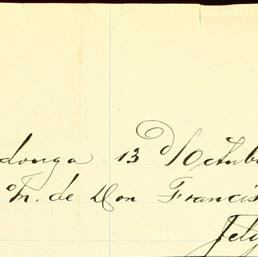 donga 13 d/Octub
M. de Don Francis
Fely